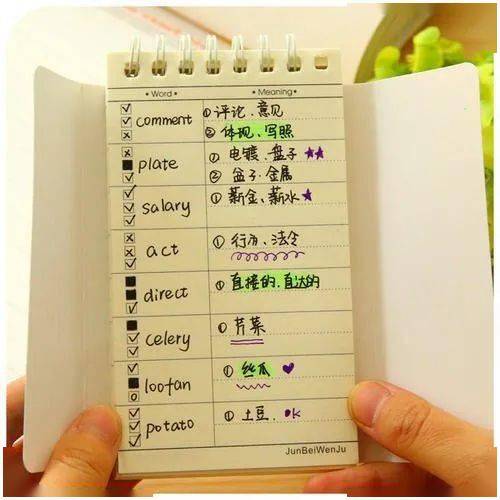 Word Meaning
comment ①评论、意见
②体现、写照
plate ①电镀、盘子
②盆子、金属
salary ①薪金、薪水
act ①行为、法令
direct ①直接的、直达的
celery ①芹菜
loofan ①丝瓜
potato ①土豆、OK
JunBeiWenJu